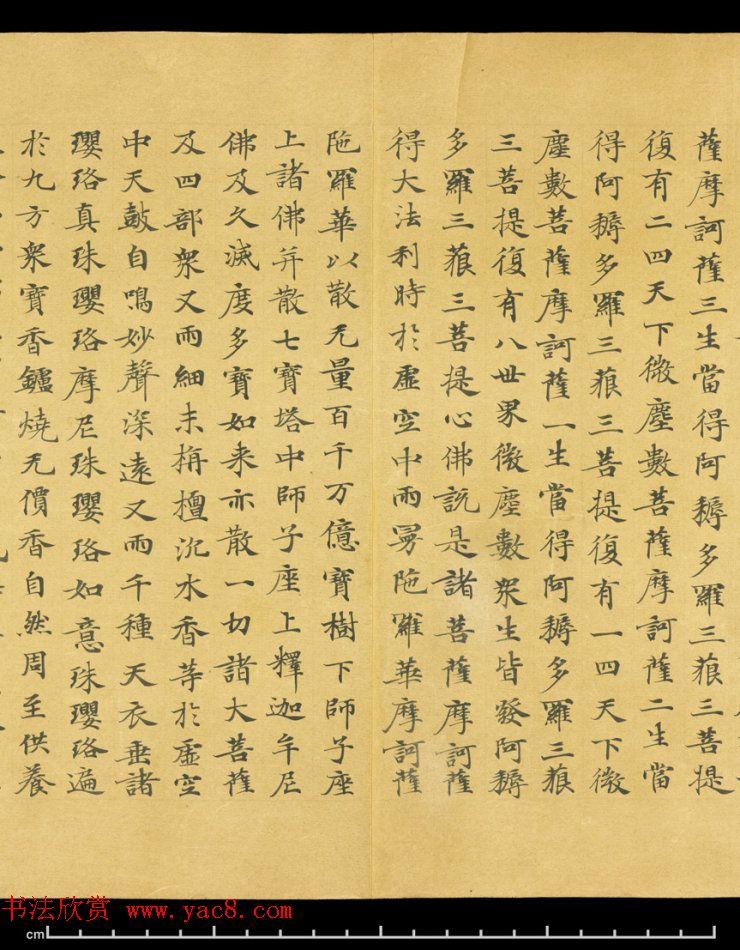 薩摩訶薩三生當得阿耨多羅三藐三菩提
復有二四天下微塵數菩薩摩訶薩二生當
得阿耨多羅三藐三菩提復有一四天下微
塵數菩薩摩訶薩一生當得阿耨多羅三藐
三菩提復有八世界微塵數衆生皆發阿耨
多羅三藐三菩提心佛説是諸菩薩摩訶薩
得大法利時於虛空中雨曼陁羅華摩訶薩
陁羅華以散无量百千万億寶樹下師子座
上諸佛并散七寶塔中師子座上釋迦牟尼
佛及久滅度多寶如来亦散一切諸大菩薩
及四部衆又雨細末栴檀沉水香等於虛空
中天鼓自鳴妙聲深遠又雨千種天衣垂諸
瓔珞真珠瓔珞摩尼珠瓔珞如意珠瓔珞遍
於九方衆寶香鑪燒无價香自然周至供養
书法欣赏 www.yac8.com
cm